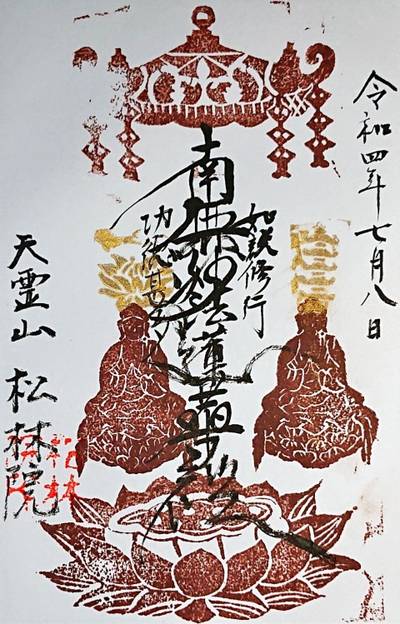 令和四年七月八日
如説修行
南無妙法蓮華経
功徳甚多
天霊山 松林院
松林